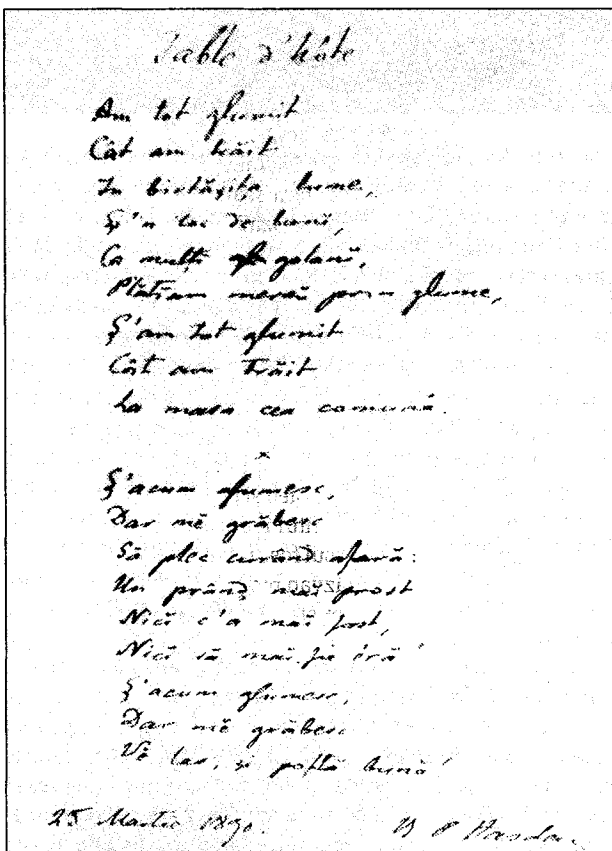 Table d'hôte
Am tot glumit
Cât am trăit
In birtășița lume,
Ș'n loc de banĭ,
Ca mulțĭ golanĭ,
Plătiam mereŭ prin glume,
Ș'am tot glumit
Cât am trăit
La masa cea comună.
Ș'acum glumesc,
Dar mĕ grăbesc
Să plec curând afară:
Un prânḑ mai prost
Nicĭ c'a maĭ fost,
Nicĭ să maĭ fie óră!
Ș'acum glumesc,
Dar mĕ grăbesc
Vĕ las, și poftă bună!
25 Martie 1890.
B P Hasdeu.